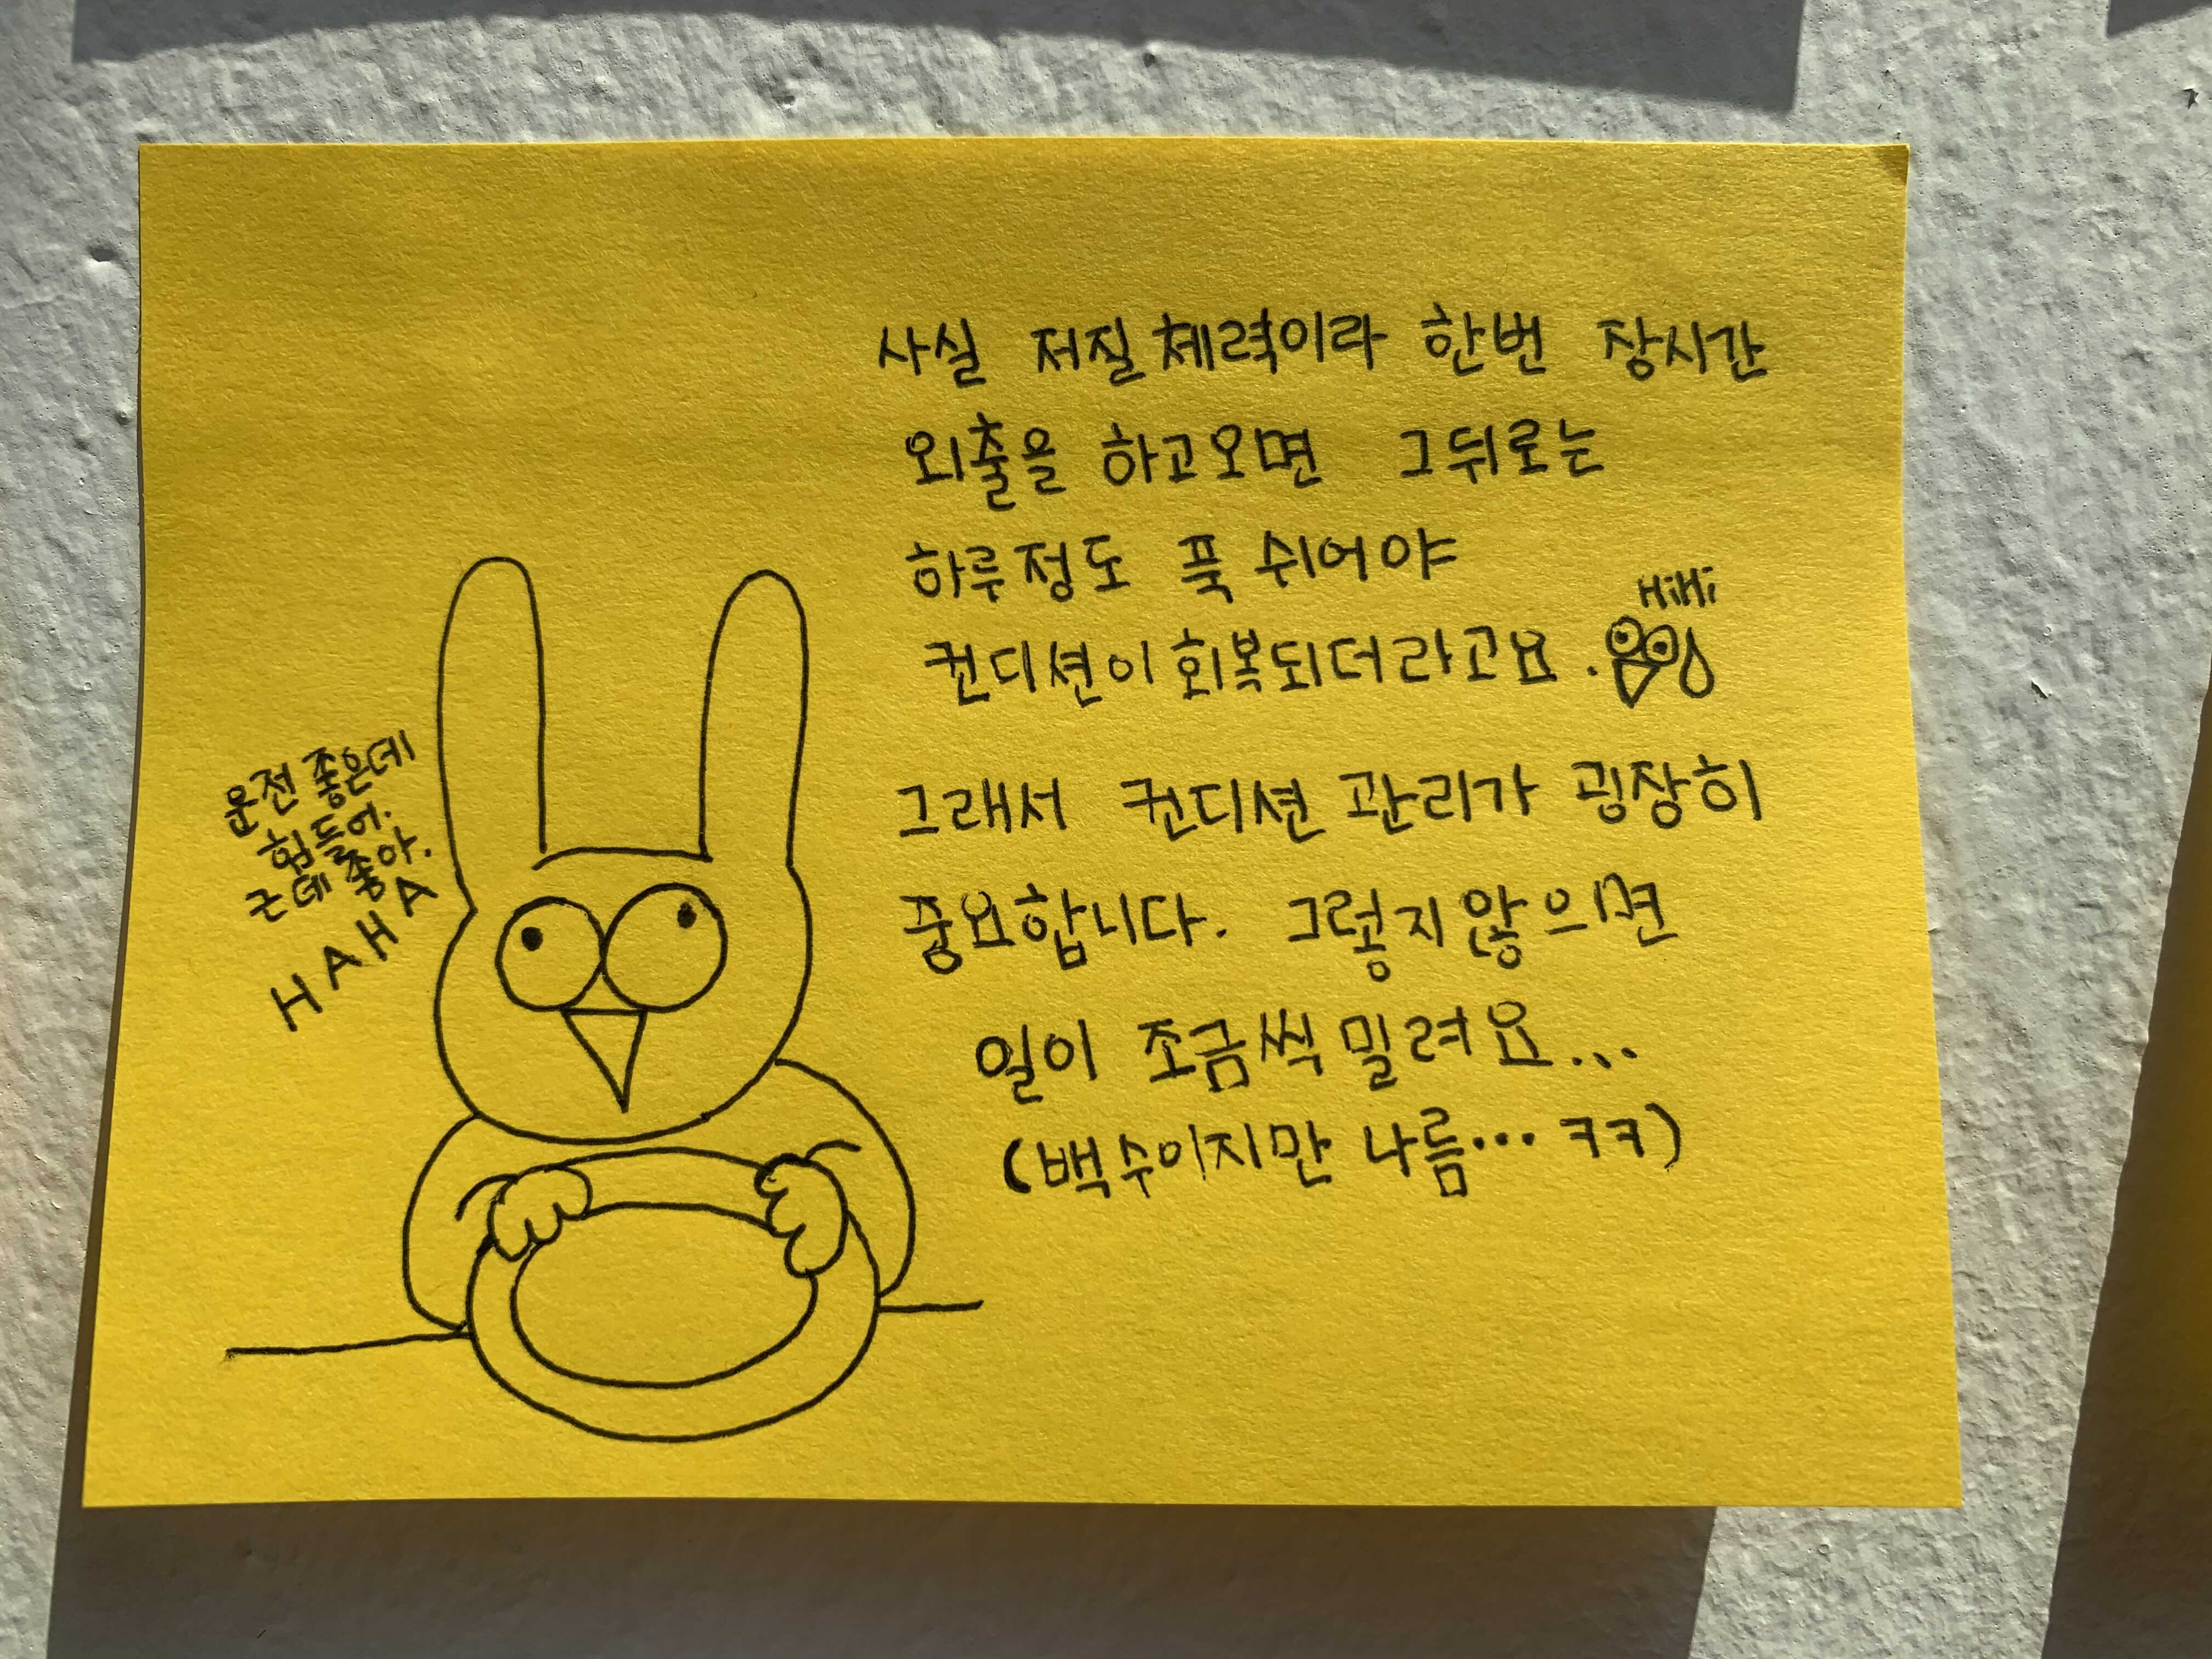 사실 저질체력이라 한번 장시간
외출을 하고오면 그뒤로는
하루정도 푹 쉬어야
컨디션이 회복되더라고요.
HiHi
그래서 컨디션 관리가 굉장히
중요합니다. 그렇지 않으면
일이 조금씩 밀려요...
(백수이지만 나름... ㅋㅋ)
운전 좋은데
힘들어.
근데 좋아.
HAHA